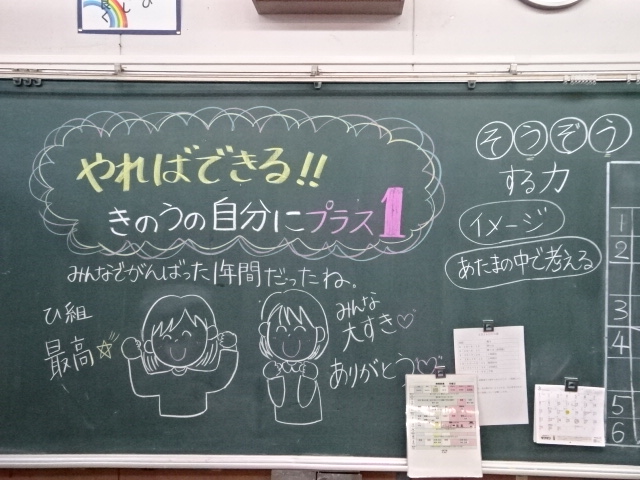 やればできる!!
きのうの自分にプラス1
みんなでがんばった1年間だったね。
ひ組
最高☆
みんな
大すき♡
ありがとう♡
そうぞう
する力
イメージ
あたまの中で考える
1
2
3
4
5
6